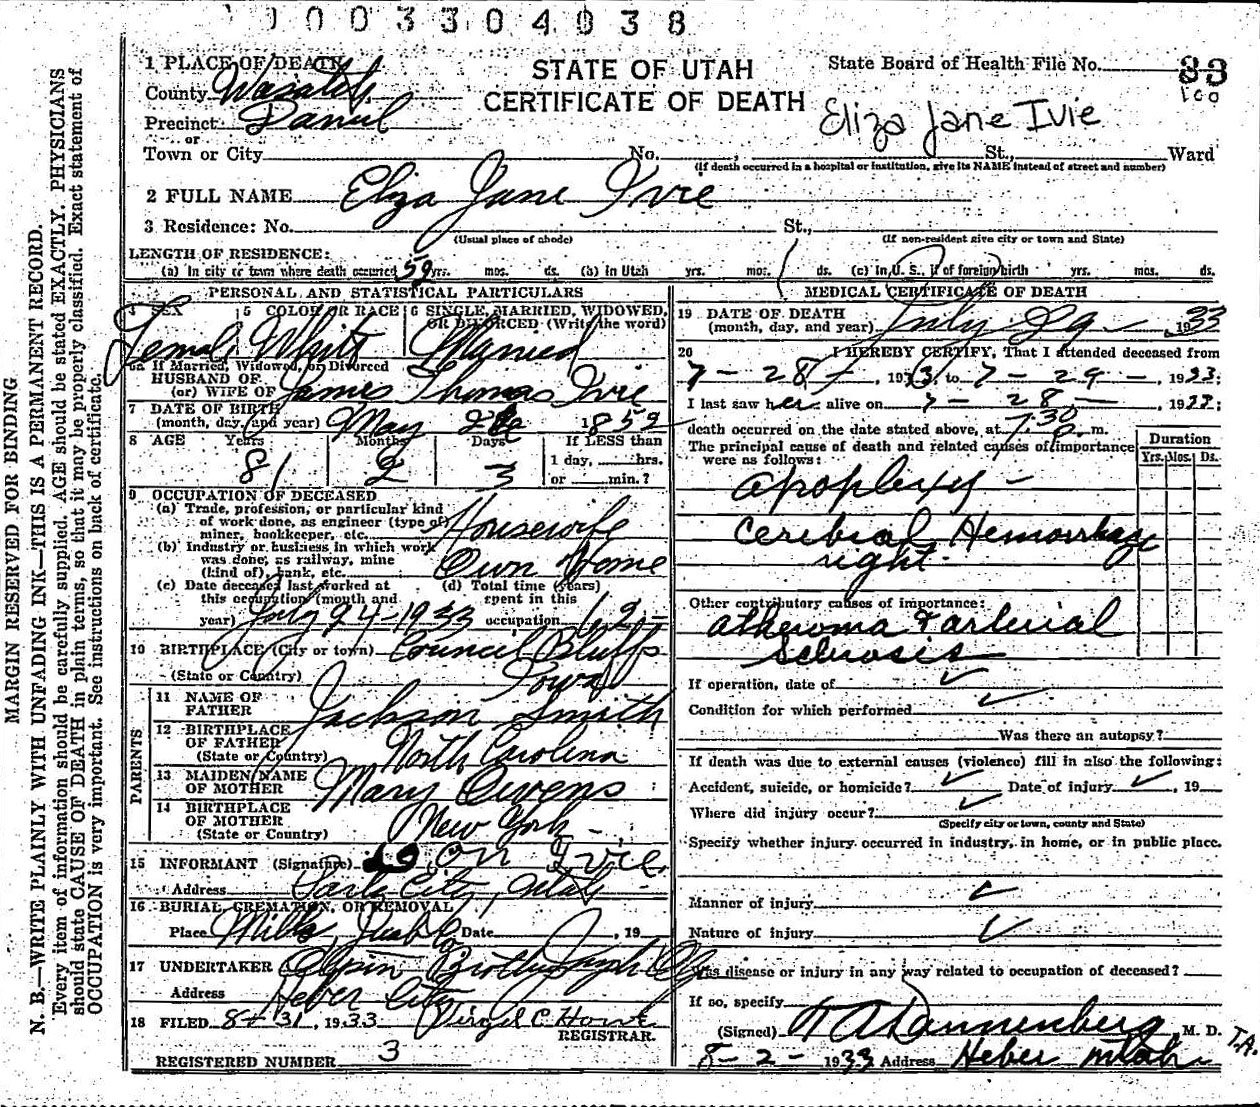 1003304038
1 PLACE OF DEATH
STATE OF UTAH
State Board of Health File No. 33
100
County Wasatch
CERTIFICATE OF DEATH
Eliza Jane Ivie
Precinct Daniel
or
Town or City No. St., Ward
(If death occurred in a hospital or institution, give its NAME instead of street and number)
2 FULL NAME Eliza Jane Ivie
3 Residence: No. St.,
(Usual place of abode) (If non-resident give city or town and State)
LENGTH OF RESIDENCE:
(a) In city or town where death occurred 59 yrs. mos. ds. (b) in Utah yrs. mos. ds. (c) in U. S., if of foreign birth yrs. mos. ds.
PERSONAL AND STATISTICAL PARTICULARS
4 SEX 5 COLOR OR RACE 6 SINGLE, MARRIED, WIDOWED, OR DIVORCED (Write the word)
Female White Married
6a If Married, Widowed, or Divorced
HUSBAND OF
(or) WIFE OF James Thomas Ivie
7 DATE OF BIRTH
(month, day, and year) May 1852
8 AGE Years Months Days If LESS than
81 2 3 1 day, hrs.
or min.?
9 OCCUPATION OF DECEASED
(a) Trade, profession, or particular kind
of work done, as engineer (type of)
miner, bookkeeper, etc. Housewife
(b) Industry or business in which work
was done, as railway, mine
(kind of), bank, etc. Own Home
(c) Date deceased last worked at (d) Total time (years)
this occupation (month and spent in this
year) July 24-1933 occupation 62
10 BIRTHPLACE (City or town) Council Bluffs
(State or Country) Iowa
PARENTS
11 NAME OF
FATHER Jackson Smith
12 BIRTHPLACE
OF FATHER North Carolina
(State or Country)
13 MAIDEN NAME
OF MOTHER Mary Owens
14 BIRTHPLACE
OF MOTHER New York
(State or Country)
15 INFORMANT (Signature) Ivie
Address Park City, Utah
16 BURIAL, CREMATION, OR REMOVAL
Place Date , 19
17 UNDERTAKER Olpin Brothers
Address Heber City
18 FILED 8-31, 1933 Virgil C. Howe
REGISTRAR.
REGISTERED NUMBER 3
MEDICAL CERTIFICATE OF DEATH
19 DATE OF DEATH
(month, day, and year) July 29 1933
20 I HEREBY CERTIFY, That I attended deceased from
7-28-, 1933, to 7-29-, 1933;
I last saw her alive on 7-28-, 1933;
death occurred on the date stated above, at 7:30 m.
The principal cause of death and related causes of importance
were as follows:
Duration
Yrs. Mos. Ds.
apoplexy -
Cerebral Hemorrhage
right.
Other contributory causes of importance:
atheroma & arterial
sclerosis
If operation, date of
Condition for which performed
Was there an autopsy?
If death was due to external causes (violence) fill in also the following:
Accident, suicide, or homicide? Date of injury , 19
Where did injury occur?
(Specify city or town, county and State)
Specify whether injury occurred in industry, in home, or in public place.
Manner of injury
Nature of injury
Was disease or injury in any way related to occupation of deceased?
If so, specify
(Signed) T A Dannenberg, M. D.
T.A.
8-2-1933 Address Heber Utah
MARGIN RESERVED FOR BINDING
N. B.—WRITE PLAINLY WITH UNFADING INK—THIS IS A PERMANENT RECORD.
Every item of information should be carefully supplied. AGE should be stated EXACTLY. PHYSICIANS
should state CAUSE OF DEATH in plain terms, so that it may be properly classified. Exact statement of
OCCUPATION is very important. See instructions on back of certificate.